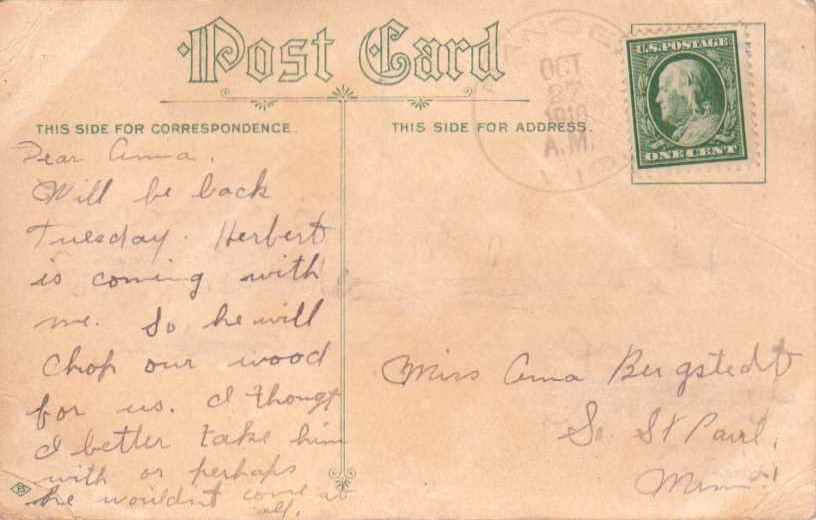 Post Card
THIS SIDE FOR CORRESPONDENCE.
THIS SIDE FOR ADDRESS.
OCT
27
1910
A.M.
U.S. POSTAGE
ONE CENT
Dear Anna,
Will be back
Tuesday. Herbert
is coming with
me. So he will
chop our wood
for us. I thougt
I better take him
with or perhaps
he wouldnt come at
all.
Miss Anna Bergstedt
So. St Paul,
Minn.